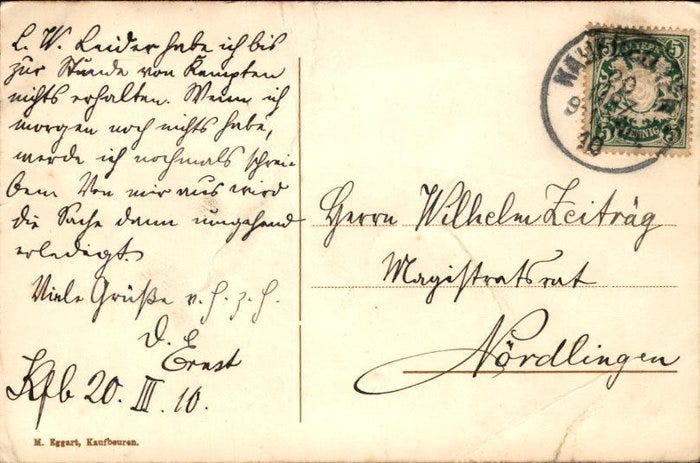 L. W. Leider habe ich bis
zur Stunde von Kempten
nichts erhalten. Wenn ich
morgen noch nichts habe,
werde ich nochmals schrei-
ben. Von mir aus wird
die Sache dann umgehend
erledigt.
Viele Grüße v. H. z. H.
D. E.
Ernst
Kfb 20. III. 10.
M. Eggart, Kaufbeuren.
5
PFENNIG
20
10
Herrn Wilhelm Zeiträg
Magistratsrat
Nördlingen